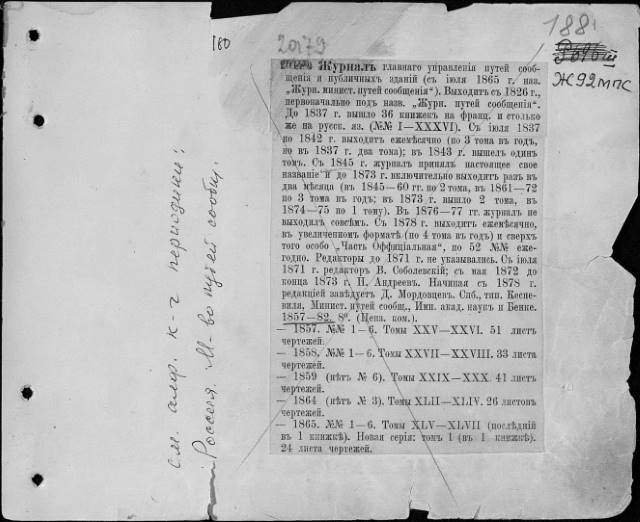 180
20179
188
Ж92мпс
Журналъ главнаго управленія путей сооб-
щенія и публичныхъ зданій (съ іюля 1865 г. наз.
„Журн. минист. путей сообщенія“). Выходитъ съ 1826 г.,
первоначально подъ назв. „Журн. путей сообщенія“.
До 1837 г. вышло 36 книжекъ на франц. и столько
же на русск. яз. (№№ I—XXXVI). Съ іюля 1837
по 1842 г. выходитъ ежемѣсячно (по 3 тома въ годъ,
но въ 1837 г. два тома); въ 1843 г. вышелъ одинъ
томъ. Съ 1845 г. журналъ принялъ настоящее свое
названіе и до 1873 г. включительно выходитъ разъ въ
два мѣсяца (въ 1845—60 гг. по 2 тома, въ 1861—72
по 3 тома въ годъ; въ 1873 г. вышло 2 тома, въ
1874—75 по 1 тому). Въ 1876—77 гг. журналъ не
выходилъ совсѣмъ. Съ 1878 г. выходитъ ежемѣсячно,
въ увеличенномъ форматѣ (по 4 тома въ годъ) и сверхъ
того особо „Часть Оффиціальная“, по 52 №№ еже-
годно. Редакторы до 1871 г. не указывались. Съ іюля
1871 г. редакторъ В. Соболевскій; съ мая 1872 до
конца 1873 г. П. Андреевъ. Начиная съ 1878 г.
редакціей завѣдуетъ Д. Мордовцевъ. Спб., тип. Кесне-
виля, Минист. путей сообщ., Имп. акад. наукъ и Бенке.
1857—82. 8°. (Ценз. ком.).
— 1857. №№ 1—6. Томы XXV—XXVI. 51 листъ
чертежей.
— 1858. №№ 1—6. Томы XXVII—XXVIII. 33 листа
чертежей.
— 1859 (нѣтъ № 6). Томы XXIX—XXX. 41 листъ
чертежей.
— 1864 (нѣтъ № 3). Томы XLII—XLIV. 26 листовъ
чертежей.
— 1865. №№ 1—6. Томы XLV—XLVII (послѣдній
въ 1 книжкѣ). Новая серія: томъ 1 (въ 1 книжкѣ).
24 листа чертежей.
см. алф. к-г периодики:
Россия. М-во путей сообщ.